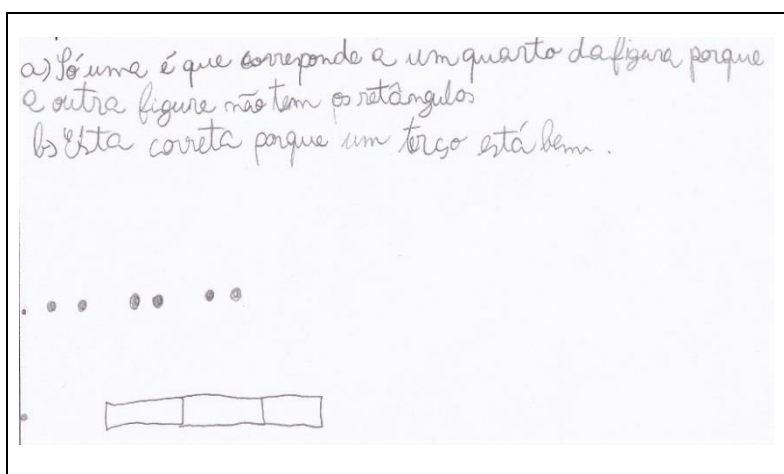 a) Só uma é que corresponde a um quarto da figura porque
a outra figura não tem os retângulos
b) Esta correta porque um terço está bem.